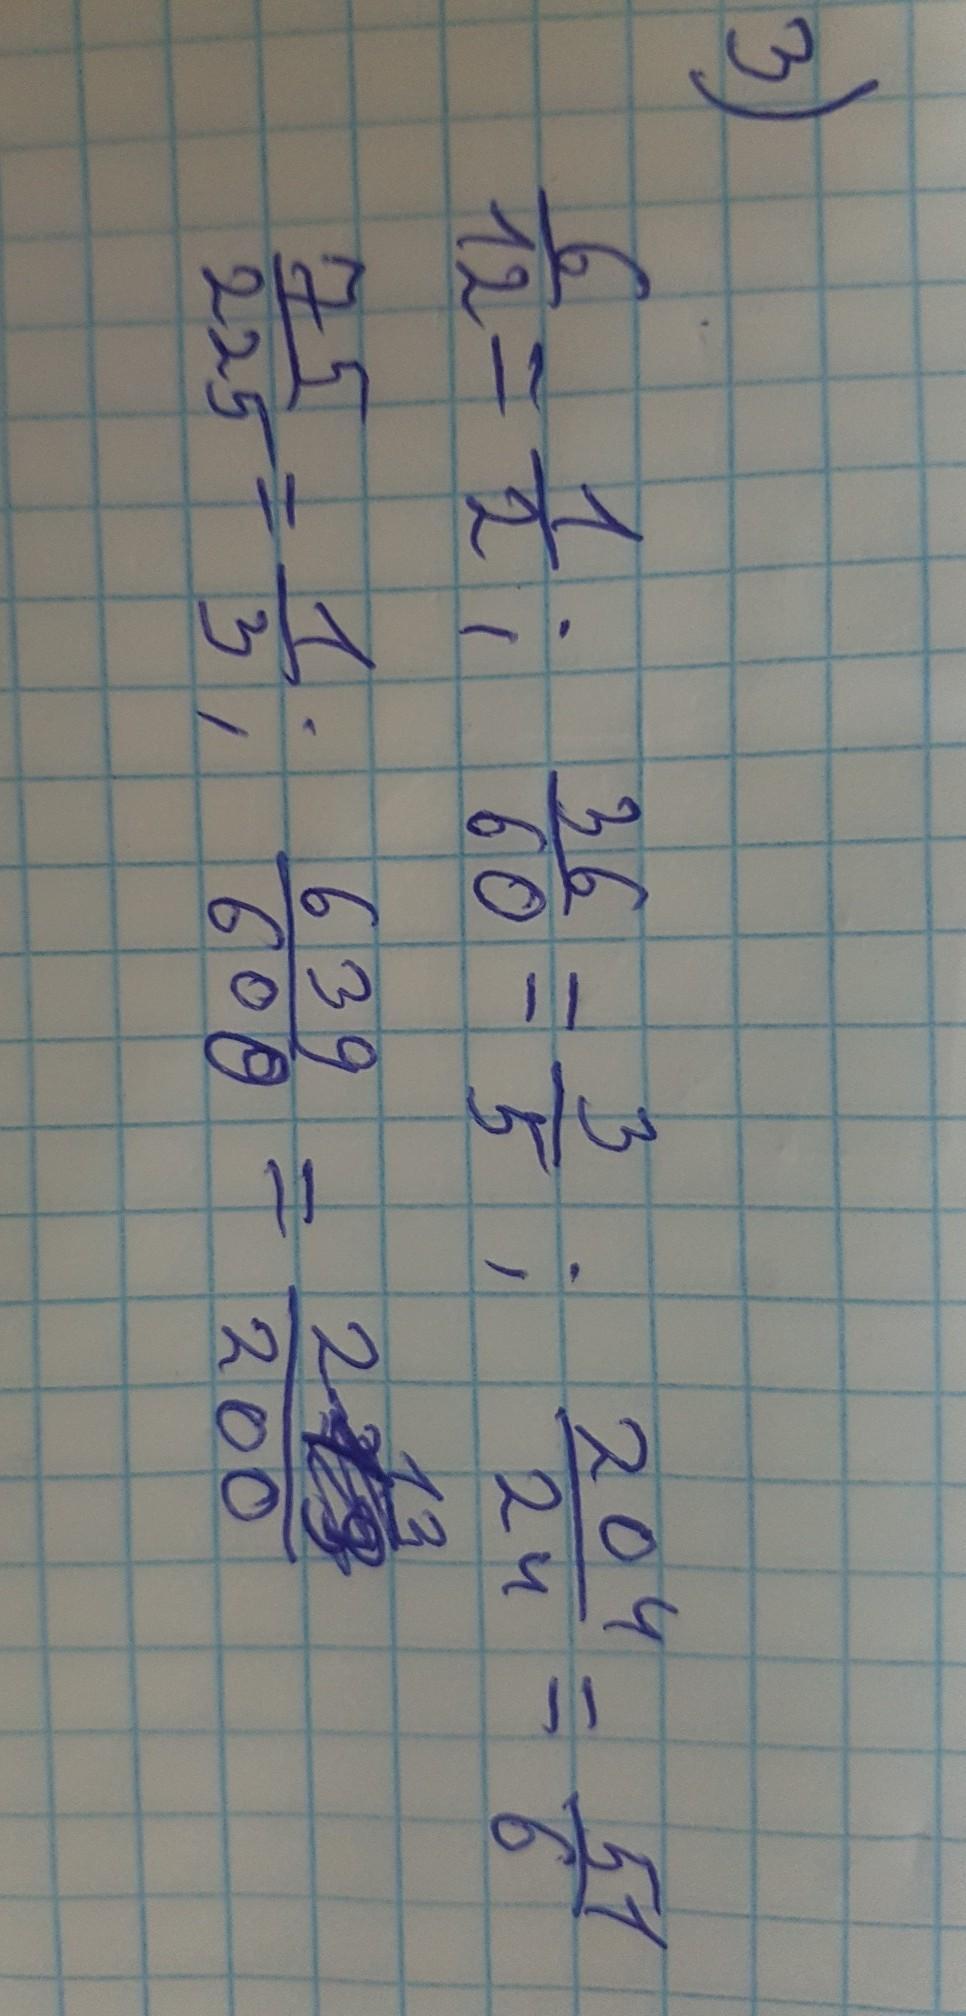 3)
6/12 = 1/2 ; 36/60 = 3/5 ; 204/24 = 51/6
75/225 = 1/3 ; 639/600 = 213/200